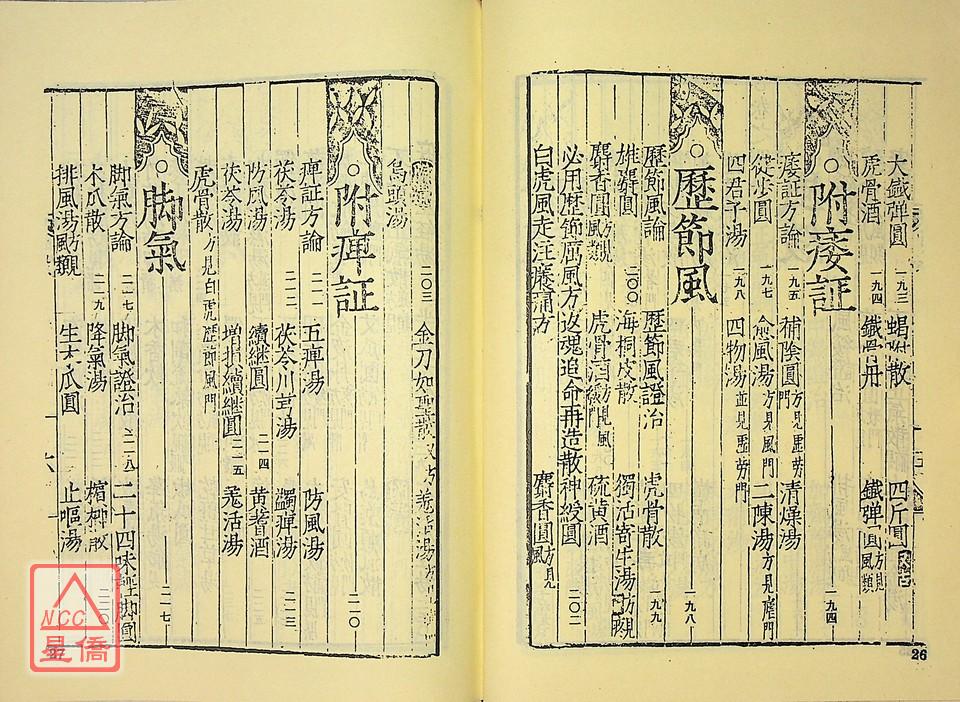 大鍼彈圓 一九三 蝎附散 四斤圓
虎骨酒 一九四 鐵骨丹 鐵彈圓方見風類
○附痿証 一九四
痿証方論 一九五 補陰圓方見虛勞門 清燥湯
從步圓 一九七 俞風湯方見風門 二陳湯方見瘧門
四君子湯 一九八 四物湯並見虛勞門
○歷節風 一九八
歷節風論 歷節風證治 虎骨散 一九九
雄礬圓 二〇〇 海桐皮散 獨活寄生湯
麝香圓方見風類 虎骨酒 硫黃酒
必用歷節厲風方返魂追命再造散神授圓 二〇二
白虎風走注癢痛方 麝香圓方見風
烏頭湯 二〇三 金刀如聖散 羗活湯
○附痺証 二一〇
痺証方論 二一一 五痺湯 防風湯
茯苓湯 二一二 茯苓川芎湯 蠲痺湯 二一三
防風湯 續繼圓 二一四 黃耆酒
茯苓湯 增損續繼圓 二一五 羗活湯
虎骨散方見白虎歷節風門
○脚氣 二一七
脚氣方論 二一七 脚氣證治 二一八 二十四味脚圓
木瓜散 二一九 降氣湯 檳榔散 二二〇
排風湯方見風類 生木瓜圓 止嘔湯
26
NCC
星僑